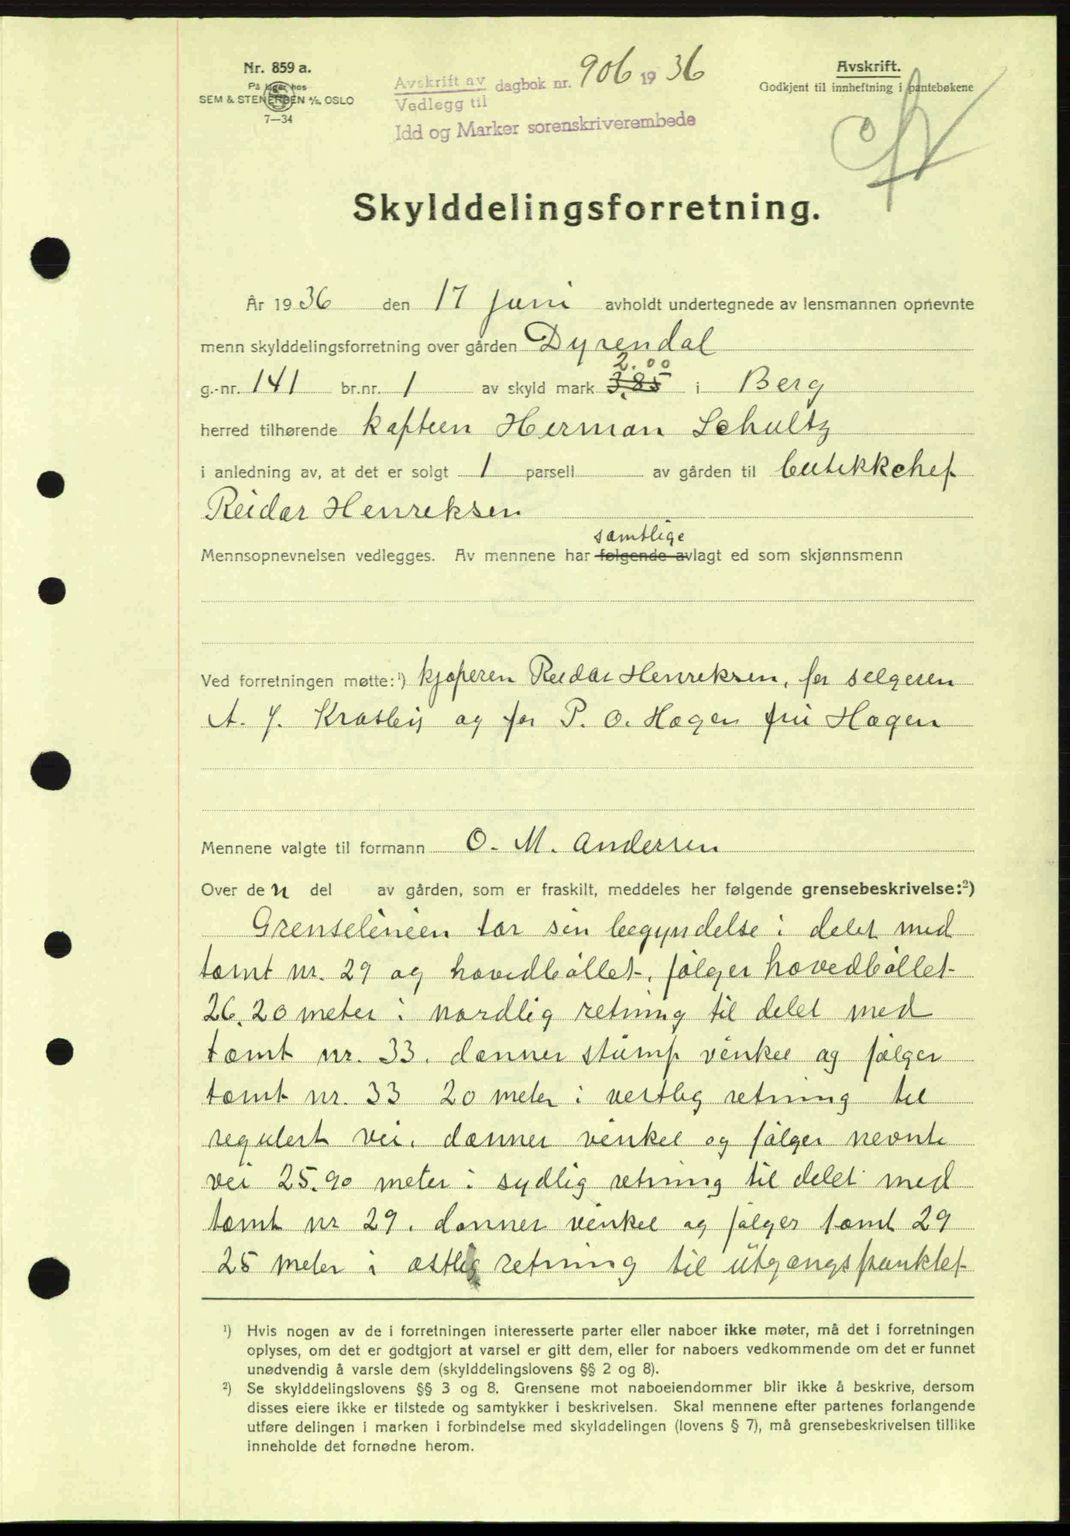 Nr. 859 a.
På lager hos
SEM & STENERSEN A/S, OSLO
7—34
Avskrift av
Vedlegg til
dagbok nr. 906 1936
Idd og Marker sorenskriverembede
Avskrift.
Godkjent til innheftning i pantebøkene
Skylddelingsforretning.
År 1936 den 17 juni avholdt undertegnede av lensmannen opnevnte
menn skylddelingsforretning over gården Dyrendal
2.00
g.-nr. 141 br.nr. 1 av skyld mark 3.85 i Berg
herred tilhørende kaptein Herman Schultz
i anledning av, at det er solgt 1 parsell av gården til butikkchef
Reidar Henriksen
samtlige
Mennsopnevnelsen vedlegges. Av mennene har følgende avlagt ed som skjønnsmenn
Ved forretningen møtte:¹) kjøperen Reidar Henriksen, for selgeren
A. J. Krosby og for P. O. Hagen fru Hagen
Mennene valgte til formann O. M. Andersen
Over den del av gården, som er fraskilt, meddeles her følgende grensebeskrivelse:²)
Grenselinien tar sin begyndelse i delet med
tomt nr. 29 og hovedbållet, følger hovedbållet
26.20 meter i nordlig retning til delet med
tomt nr. 33. danner stump vinkel og følger
tomt nr. 33 20 meter i vestlig retning til
regulert vei. danner vinkel og følger nevnte
vei 25.90 meter i sydlig retning til delet med
tomt nr 29. danner vinkel og følger tomt 29
25 meter i østlig retning til utgangspunktet
¹) Hvis nogen av de i forretningen interesserte parter eller naboer ikke møter, må det i forretningen
oplyses, om det er godtgjort at varsel er gitt dem, eller for naboers vedkommende om det er funnet
unødvendig å varsle dem (skylddelingslovens §§ 2 og 8).
²) Se skylddelingslovens §§ 3 og 8. Grensene mot naboeiendommer blir ikke å beskrive, dersom
disses eiere ikke er tilstede og samtykker i beskrivelsen. Skal mennene efter partenes forlangende
utføre delingen i marken i forbindelse med skylddelingen (lovens § 7), må grensebeskrivelsen tillike
inneholde det fornødne herom.